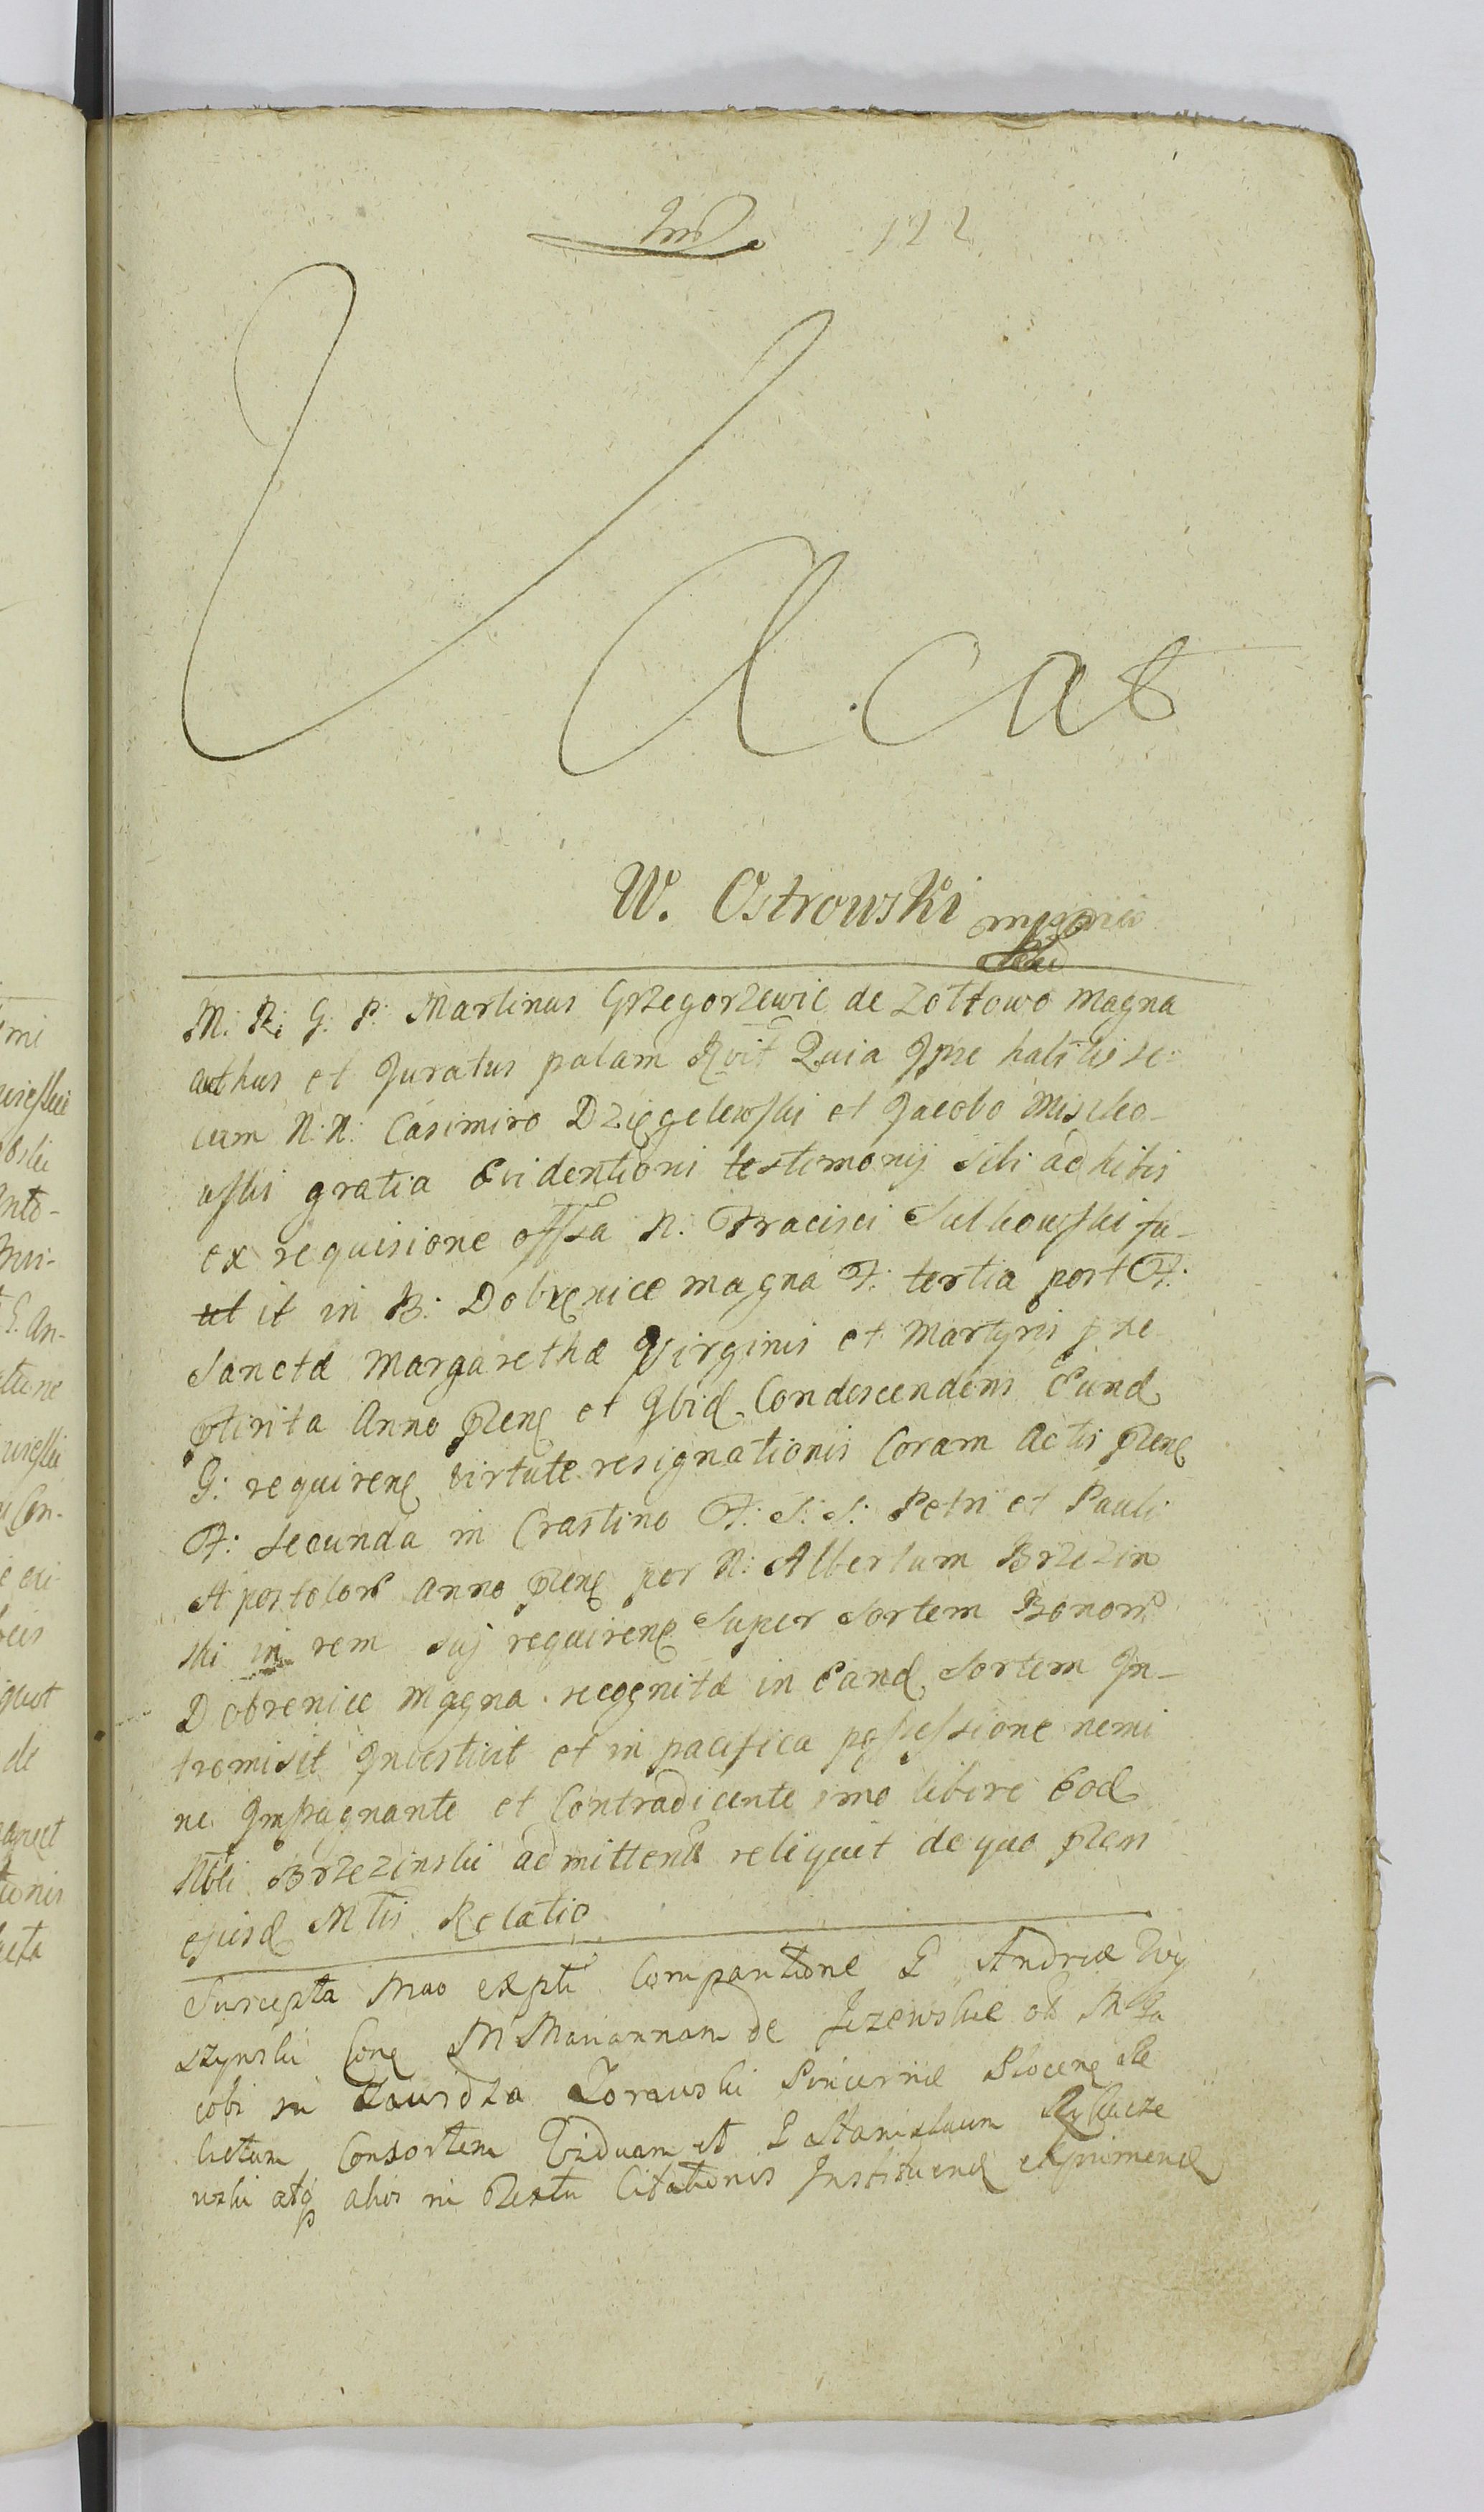 122
Vacat
W. Ostrowski
M. R. G. P. Martinus Grzegorzewic de Zołtowo magna
authus et Juratus palam Rvit Quia Ipse habitis se
cum N: N: Casimiro Dziegelewski et Jacobo Miszko-
wski gratia Evidentioris testemonij sibi adhibis
ex requisione offsa N. Fracisci Sulkowski fu-
it in B: Dobrenice magna F: tertia post F:
Sanctæ Margarethæ Virginis et Martyris pxe
ptirita Anno Pren et Ibid Condescendens Eund
G: requiren virtute resignationis Coram Actis Pren
F: secunda in Crastino F: S: S: Petri et Pauli
Apostolor anno Pren per N: Albertum Brzezin
ski in rem suj requiren super sortem Bonor
Dobrenice magna recognitæ in Eand sortem In-
tromisit Investivit et in pacifica possessione nemi
ne Impugnante et Contradicente imo libere Eod
Nbli Brzezinski admitten reliquit de quo Pren
ejusd Mtis Relatio
Suscepta Mao expti Compantione G Andreæ Wy
szynski Con M Mariannam de Jezewskie ob M
cobi in Zorawski Pincernæ Plocen
lictam Consortem Viduam et G Stanislaum
wski atq alios in Pextu Citationis Instituend exprimend